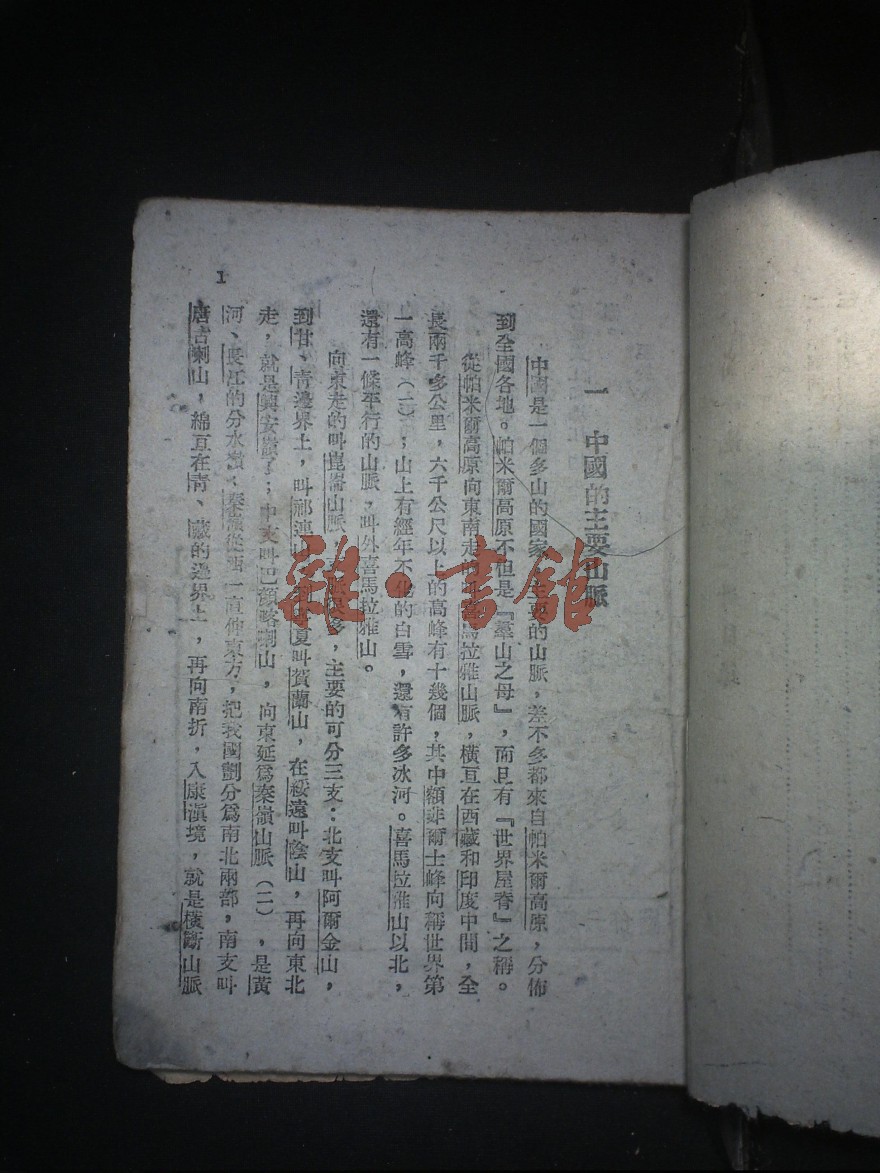 一　中國的主要山脈
中國是一個多山的國家，主要的山脈，差不多都來自帕米爾高原，分佈
到全國各地。帕米爾高原不但是『羣山之母』，而且有『世界屋脊』之稱。
從帕米爾高原向東南走的叫喜馬拉雅山脈，橫亘在西藏和印度中間，全
長兩千多公里，六千公尺以上的高峰有十幾個，其中額非爾士峰向稱世界第
一高峰（一）；山上有經年不化的白雪，還有許多冰河。喜馬拉雅山以北，
還有一條平行的山脈，叫外喜馬拉雅山。
向東走的叫崑崙山脈，很多，主要的可分三支：北支叫阿爾金山，
到甘、青邊界上，叫祁連山，夏叫賀蘭山，在綏遠叫陰山，再向東北
走，就是興安嶺了；中支叫巴顏喀喇山，向東延爲秦嶺山脈（二），是黃
河、長江的分水嶺；秦嶺從西一直伸東方，把我國劃分爲南北兩部，南支叫
唐古喇山，綿亘在青、藏的邊界上，再向南折，入康滇境，就是橫斷山脈
1
雜·書館